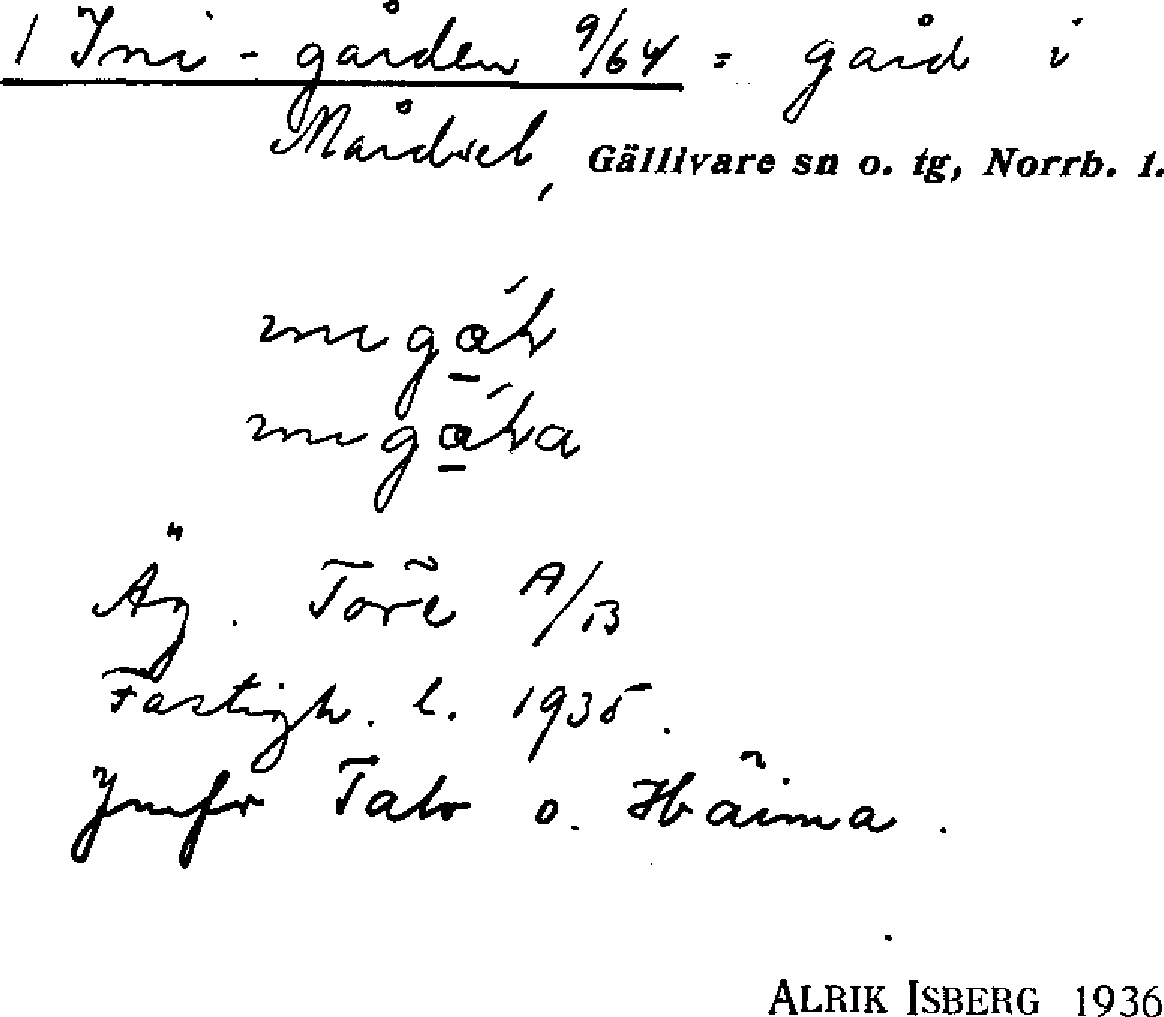 1 Ini-gården 9/64 = gård i
Mårdsel, Gällivare sn o. tg, Norrb. l.
Äg. Töre A/B
Fastigh. l. 1935.
Jmfr Talo o. Häima.
ALRIK ISBERG 1936